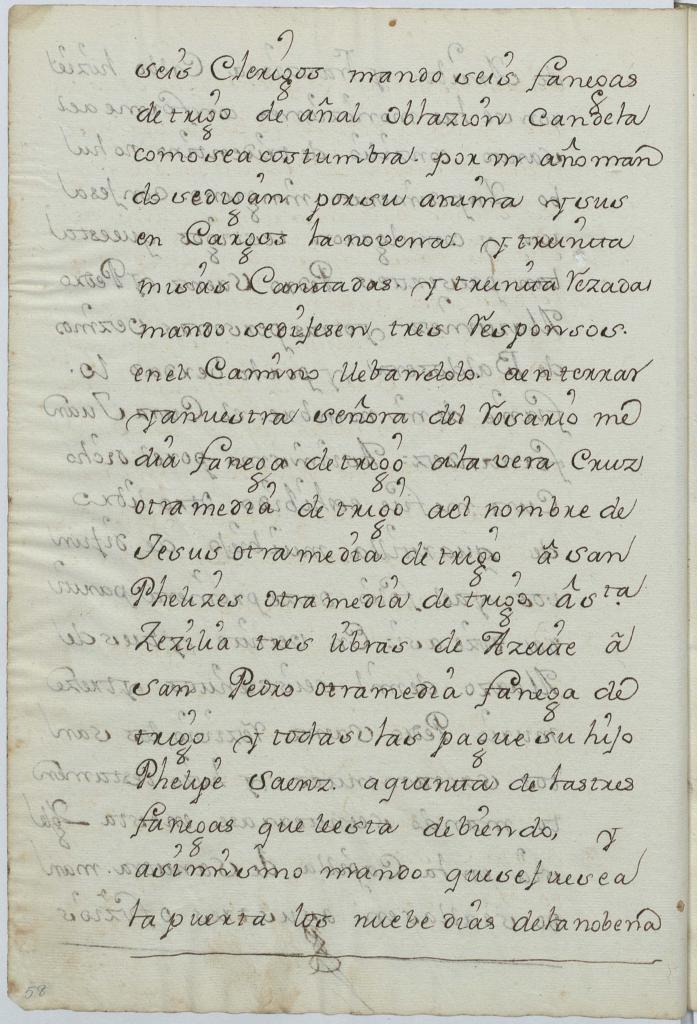 seis Clerigos mando seis fanegas
de trigo de añal oblazion Candela
como sea costumbra. por vn año man
do se digan por su anima y sus
en Cargos la novena. y treinta
misas Cantadas y treinta Rezadas
mando se dijesen tres Responsos.
en el Camino llebandolo. a enterrar
y a nuestra señora del Rosario me
dia fanega de trigo a la vera Cruz
otra media de trigo a el nombre de
Jesus otra media de trigo â san
Phelizes otra media de trigo â s.ta
Zezilia tres libras de Azeite â
san Pedro otra media fanega de
trigo y todas las pague su hijo
Phelipe Saenz. a quenta de las tres
fanegas que le esta debiendo, y
asimismo mando que se
la puerta los nuebe dias de la nobena
58